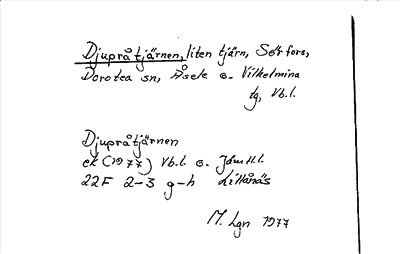 Djupråtjärnen, liten tjärn, Sörfors,
Dorotea sn, Åsele o. Vilhelmina
tg, Vb.l.
Djupråtjärnen
ek (1977) Vb.l. o. Jämtl.l.
22F 2-3 g-h Lillånäs
M. Lgn 1977